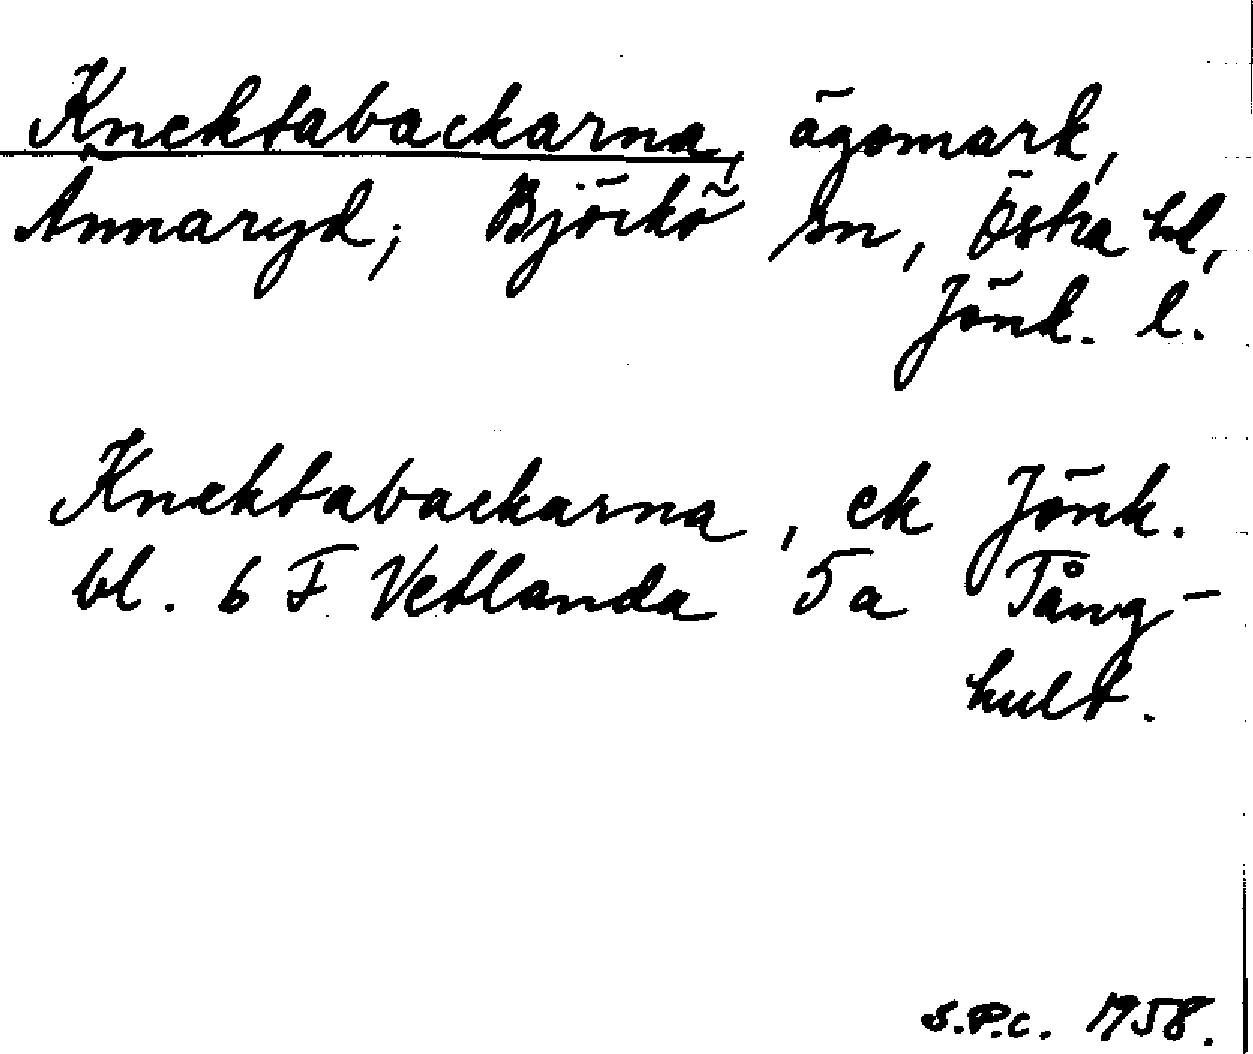 Knektabackarna, ägomark,
Ännaryd, Björkö sn, Östra hd,
Jönk. l.
Knektabackarna, ek Jönk.
bl. 6 F Vetlanda 5a Tång-
hult.
S.P.C. 1958.